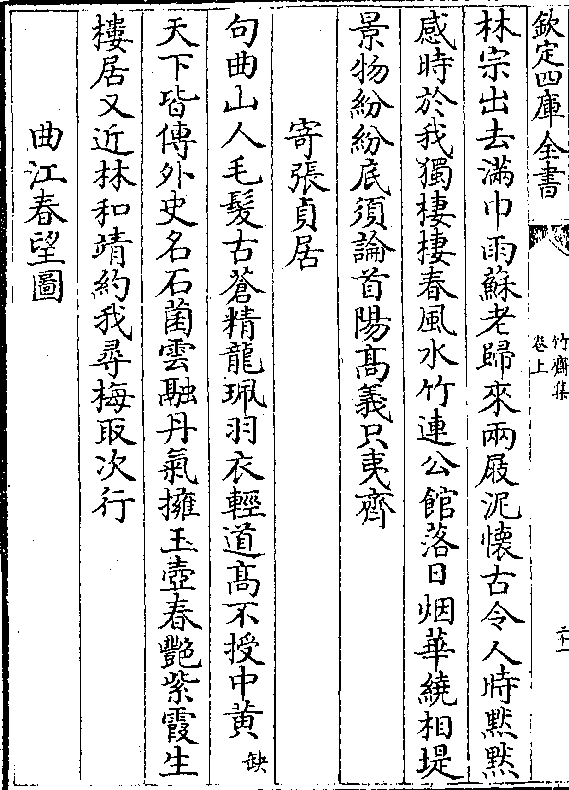 欽定四庫全書
竹齋集
卷上
二十一
林宗出去滿巾雨蘇老歸來兩屐泥懷古令人時黙黙
感時於我獨棲棲春風水竹連公館落日烟華繞相堤
景物紛紛底須論首陽髙義只夷齊
寄張貞居
句曲山人毛髮古蒼精龍珮羽衣輕道髙不授中黄缺
天下皆傳外史名石菌雲融丹氣擁玉壺春艷紫霞生
樓居又近林和靖約我尋梅取次行
曲江春望圖